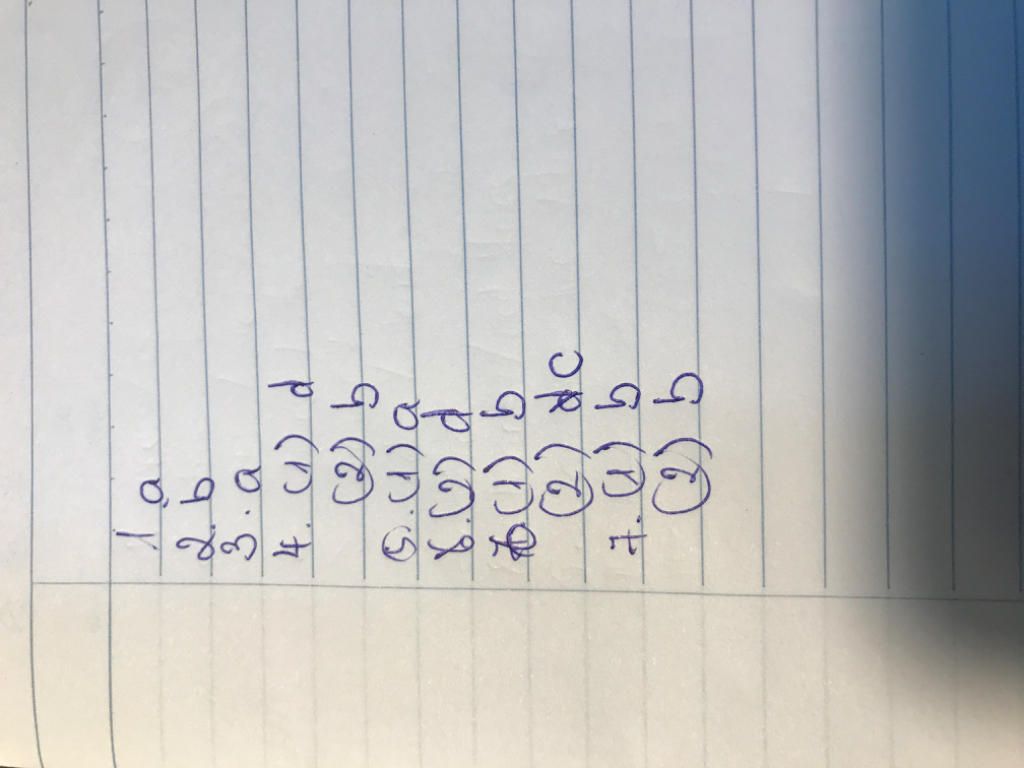 1 a
2. b
3. a
4. (1) d
(2) b
5. (1) a
(2) d
6 (1) b
(2) c
7. (1) b
(2) b